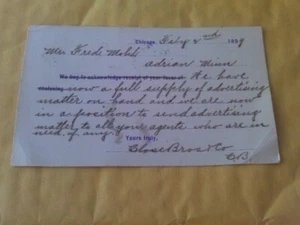 Chicago, July 2nd 1889
Mr. Fredi
Adrian Minn
We beg to acknowledge receipt of your favor of. We have
enclosing now a full supply of advertising
matter on hand and we are now
in a position to send advertising
matter to all your agents who are in
need of any.
Yours truly,
Close Bros & Co
C.B.